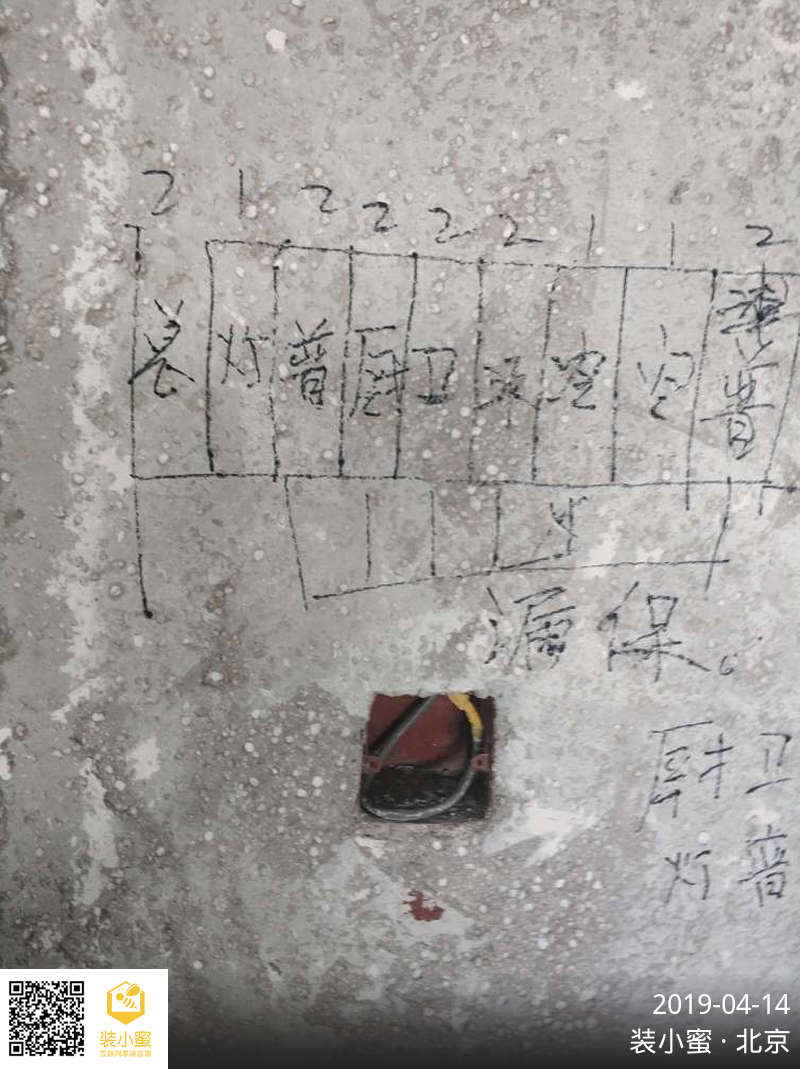 2 1 2 2 2 2 1 1 2
灯 普 厨 卫 空 空 普
漏保。
厨 卫
灯 普
装小蜜
2019-04-14
装小蜜·北京